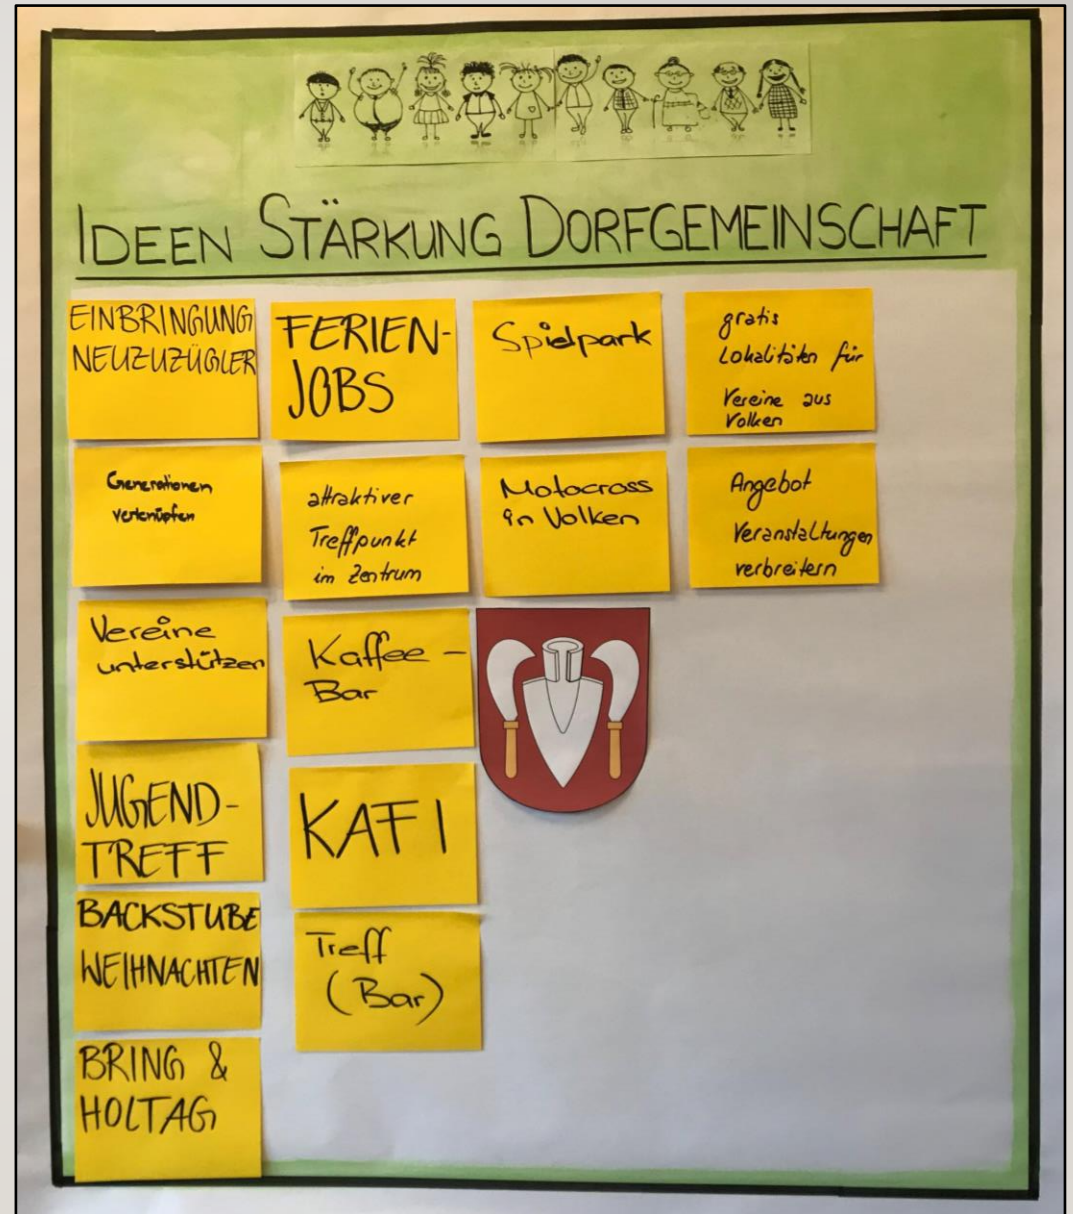 IDEEN STÄRKUNG DORFGEMEINSCHAFT
EINBRINGUNG
NEUZUZÜGLER
Generationen
verknüpfen
Vereine
unterstützen
JUGEND-
TREFF
BACKSTUBE
WEIHNACHTEN
BRING &
HOLTAG
FERIEN-
JOBS
attraktiver
Treffpunkt
im Zentrum
Kaffee-
Bar
KAFI
Treff
(Bar)
Spielpark
Motocross
in Volken
gratis
Lokalitäten für
Vereine aus
Volken
Angebot
Veranstaltungen
verbreitern